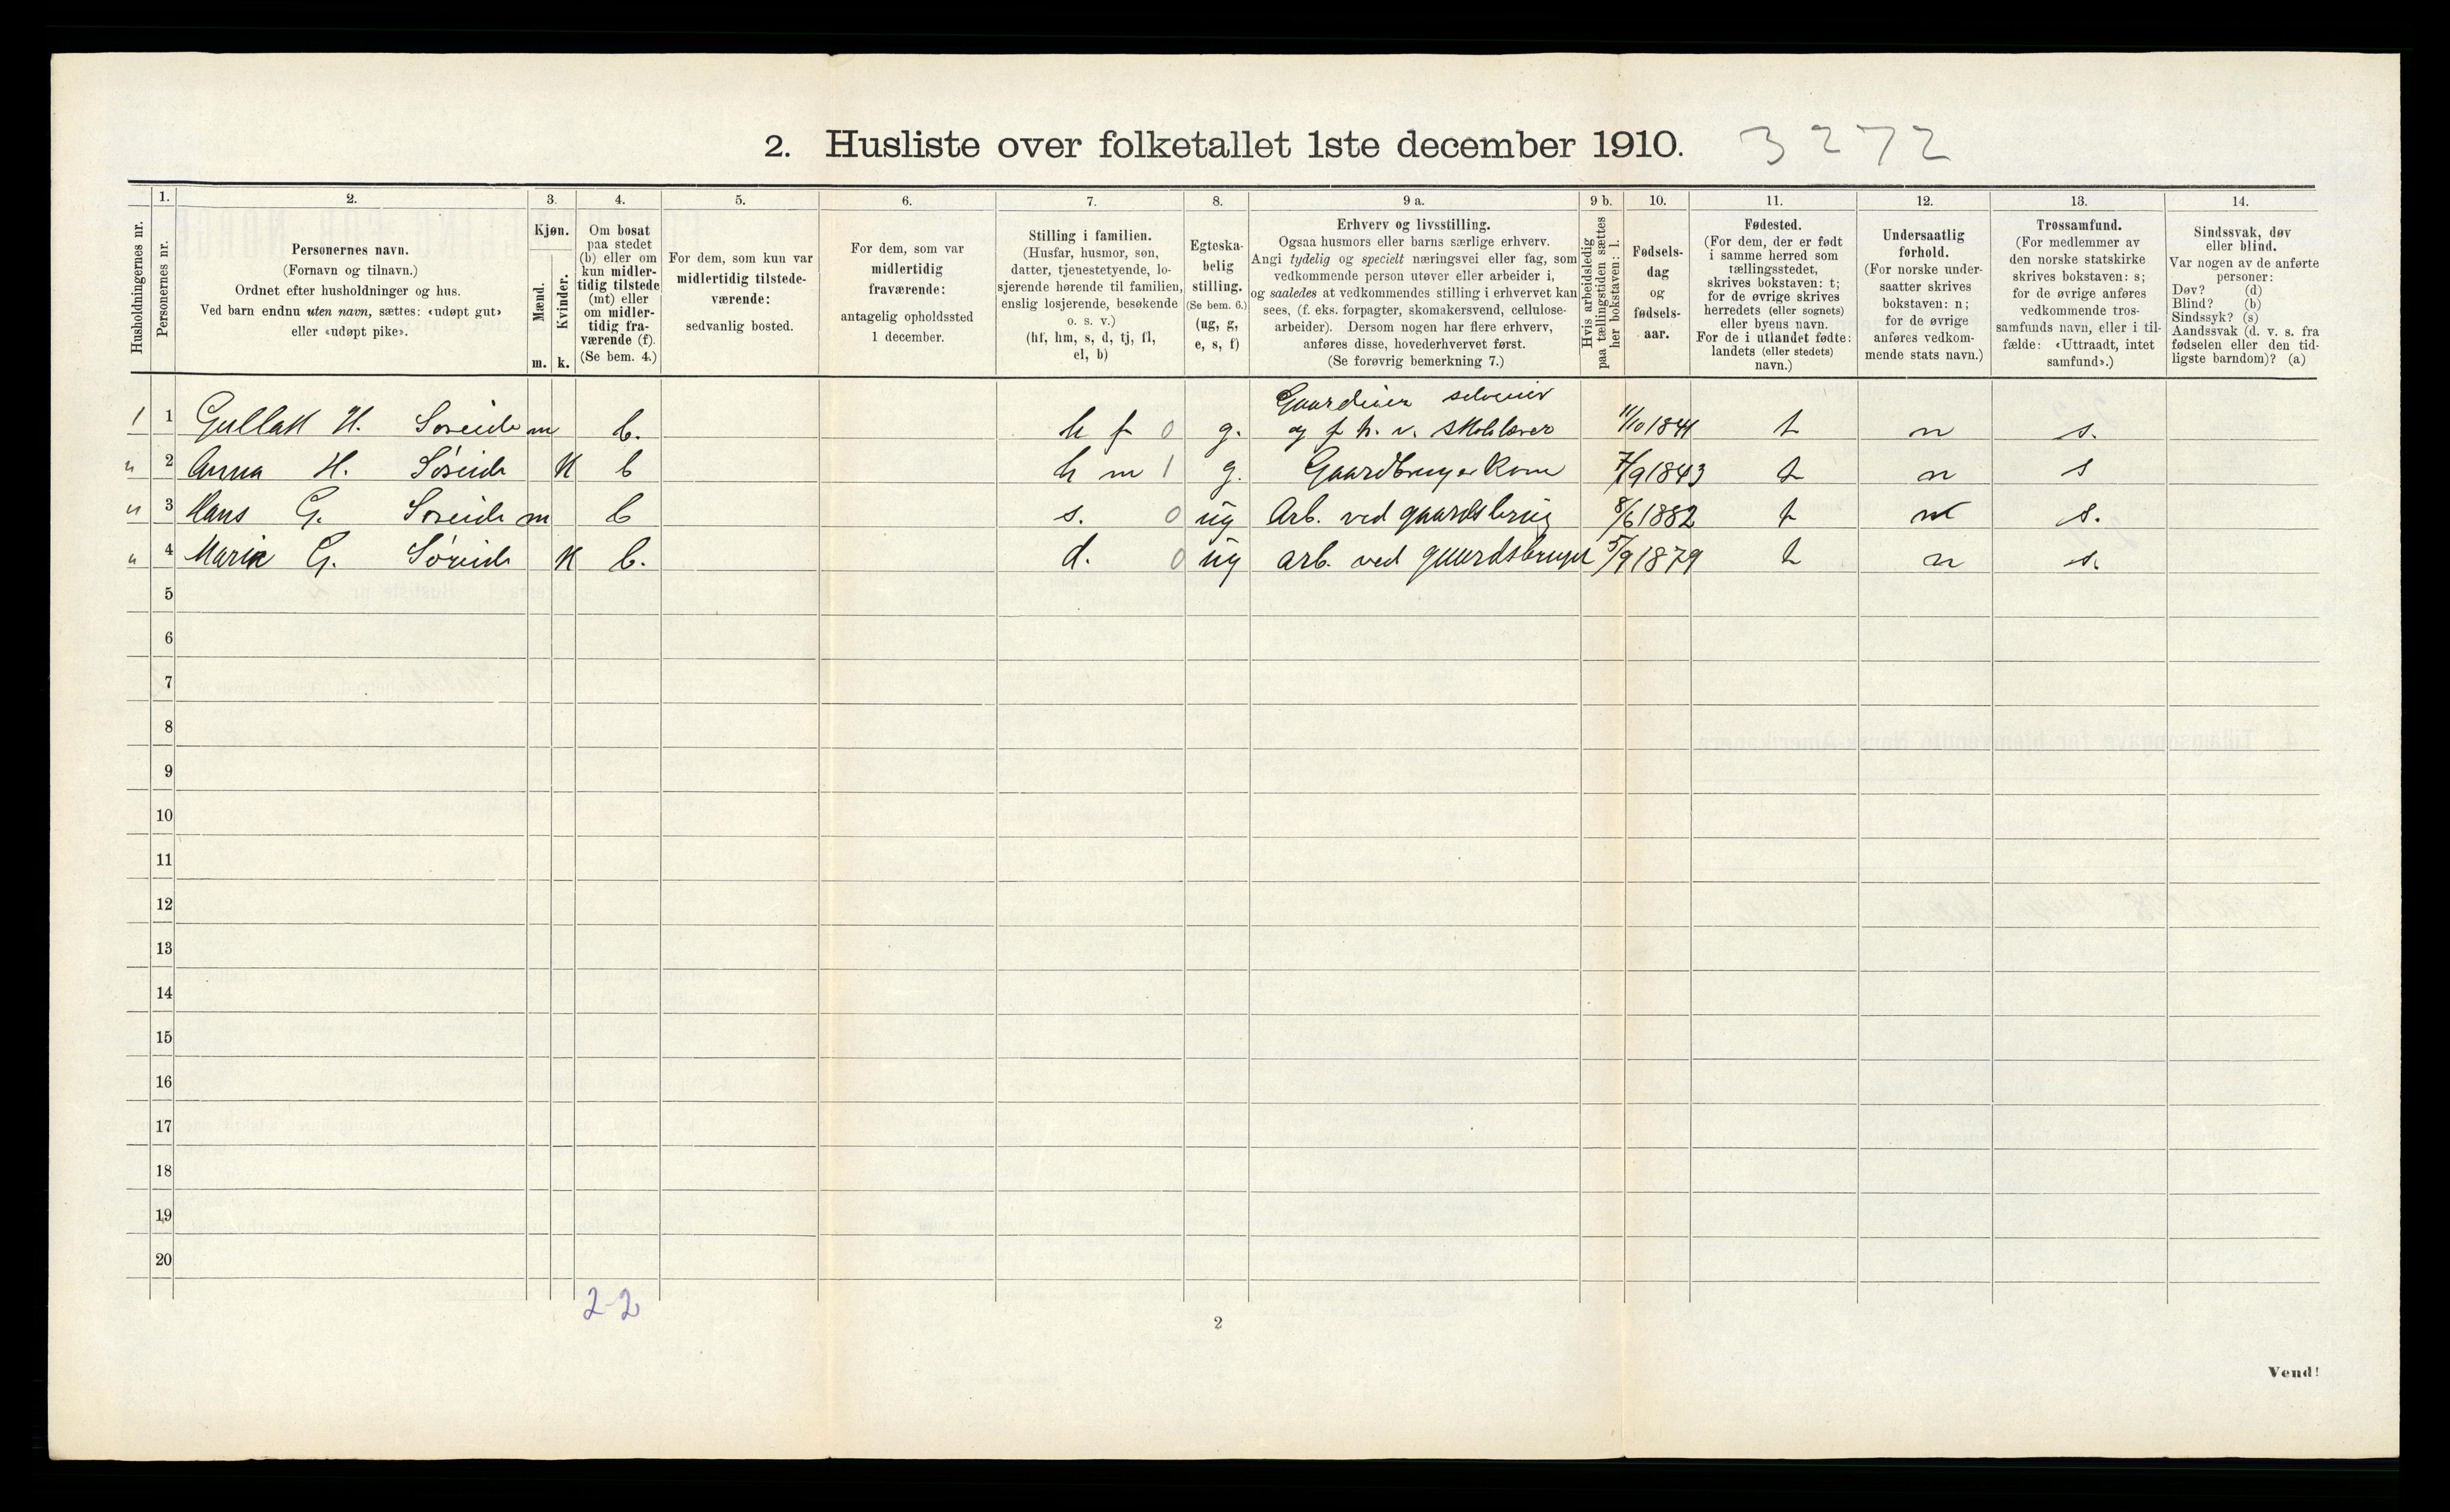 2. Husliste over folketallet 1ste december 1910. 3272
Husholdningernes nr.
1.
Personernes nr.
2.
Personernes navn.
(Fornavn og tilnavn.)
Ordnet efter husholdninger og hus.
Ved barn endnu uten navn, sættes: «udøpt gut»
eller «udøpt pike».
3.
Kjøn.
Mænd.
Kvinder.
m. k.
4.
Om bosat
paa stedet
(b) eller om
kun midler-
tidig tilstede
(mt) eller
om midler-
tidig fra-
værende (f).
(Se bem. 4.)
5.
For dem, som kun var
midlertidig tilstede-
værende:
sedvanlig bosted.
6.
For dem, som var
midlertidig
fraværende:
antagelig opholdssted
1 december.
7.
Stilling i familien.
(Husfar, husmor, søn,
datter, tjenestetyende, lo-
sjerende hørende til familien,
enslig losjerende, besøkende
o. s. v.)
(hf, hm, s, d, tj, fl,
el, b)
8.
Egteska-
belig
stilling.
(Se bem. 6.)
(ug, g,
e, s, f)
9 a.
Erhverv og livsstilling.
Ogsaa husmors eller barns særlige erhverv.
Angi tydelig og specielt næringsvei eller fag, som
vedkommende person utøver eller arbeider i,
og saaledes at vedkommendes stilling i erhvervet kan
sees, (f. eks. forpagter, skomakersvend, cellulose-
arbeider). Dersom nogen har flere erhverv,
anføres disse, hovederhvervet først.
(Se forøvrig bemerkning 7.)
9 b.
Hvis arbeidsledig
paa tællingstiden sættes
her bokstaven: l.
10.
Fødsels-
dag
og
fødsels-
aar.
11.
Fødested.
(For dem, der er født
i samme herred som
tællingsstedet,
skrives bokstaven: t;
for de øvrige skrives
herredets (eller sognets)
eller byens navn.
For de i utlandet fødte:
landets (eller stedets)
navn.)
12.
Undersaatlig
forhold.
(For norske under-
saatter skrives
bokstaven: n;
for de øvrige
anføres vedkom-
mende stats navn.)
13.
Trossamfund.
(For medlemmer av
den norske statskirke
skrives bokstaven: s;
for de øvrige anføres
vedkommende tros-
samfunds navn, eller i til-
fælde: «Uttraadt, intet
samfund».)
14.
Sindssvak, døv
eller blind.
Var nogen av de anførte
personer:
Døv? (d)
Blind? (b)
Sindssyk? (s)
Aandssvak (d. v. s. fra
fødselen eller den tid-
ligste barndom)? (a)
1 1 Gullak H. Søreide m b. h f 0 g. og f h. v. 11/10 1841 t n s.
" 2 Anna H. Søreide K b h m 1 g. Gaardbrugerkone 7/9 1843 t n s
" 3 Hans G. Søreide m b s. 0 ug Arb. ved gaardsbrug 8/6 1882 t n s.
" 4 Marie G. Søreide K b. d. 0 ug arb. ved gaardsbruget 5/9 1879 t n s.
5
6
7
8
9
10
11
12
13
14
15
16
17
18
19
20
2-2
2
Vend!